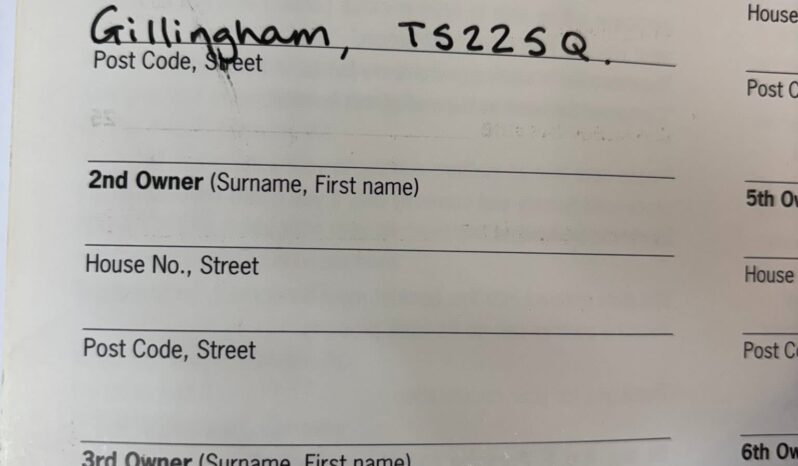 Gillingham, TS22SQ.
Post Code, Street
2nd Owner (Surname, First name)
House No., Street
Post Code, Street
3rd Owner (Surname, First name)
House
Post C
5th Ow
House
Post Co
6th Ow